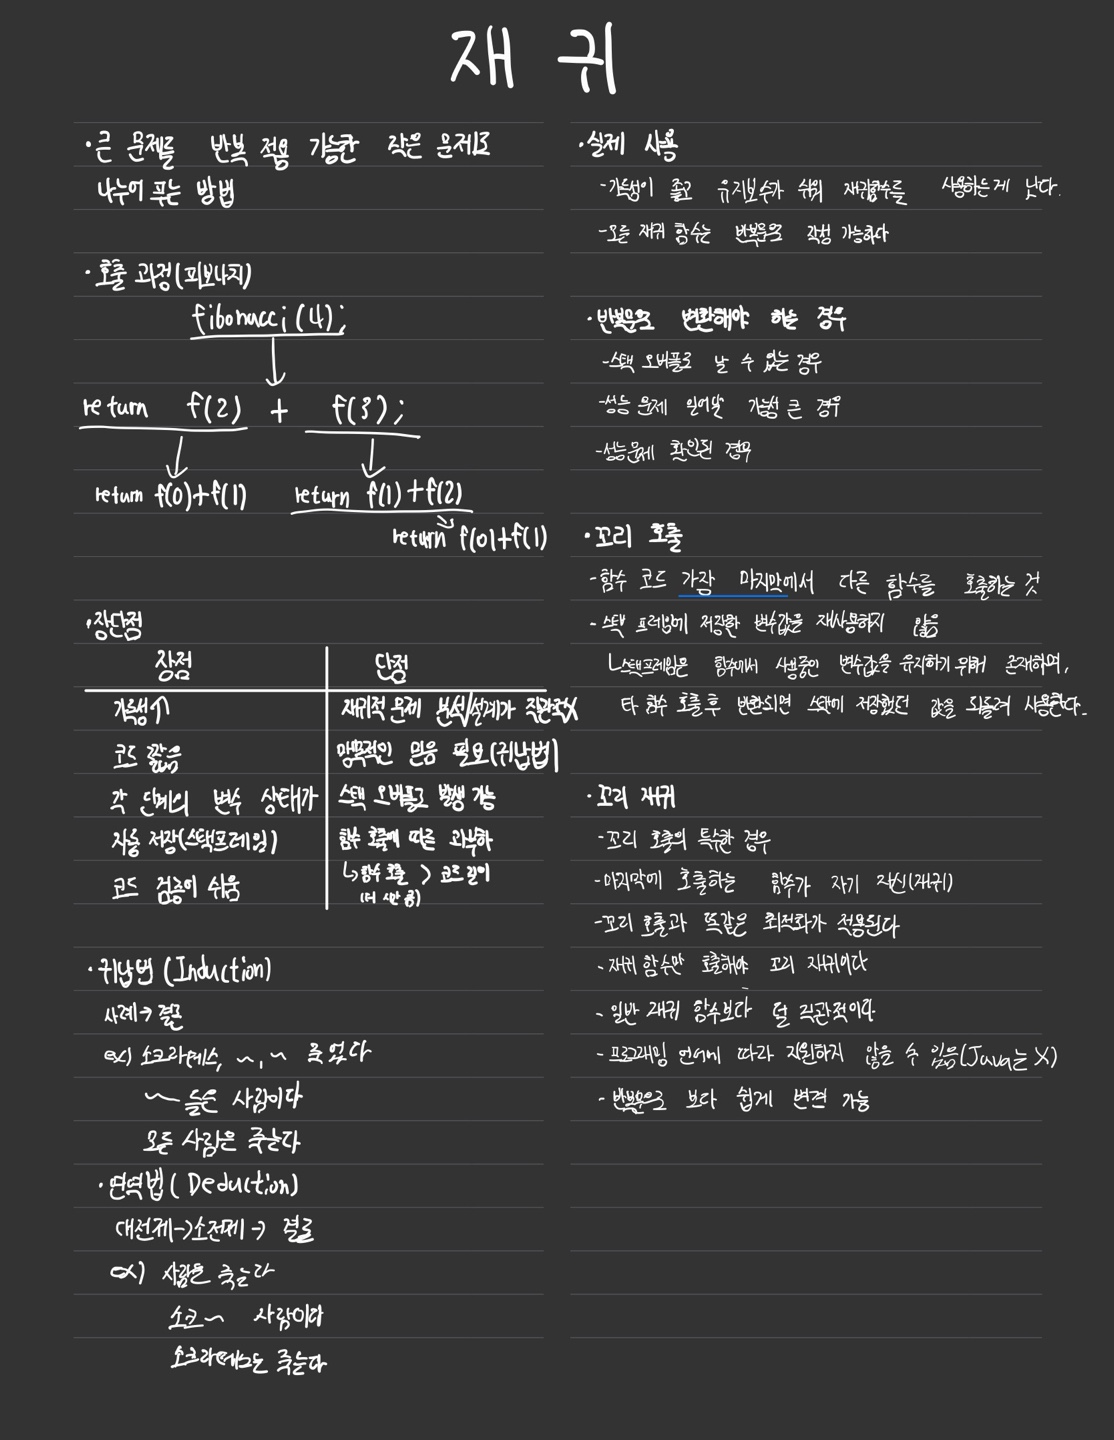 재 귀
· 큰 문제를 반복 적용 가능한 작은 문제로
나누어 푸는 방법
· 호출 과정(피보나치)
fibonacci(4);
return f(2) + f(3);
return f(0)+f(1) return f(1)+f(2)
return f(0)+f(1)
· 장단점
장점 단점
가독성↑ 재귀적 문제 분석/설계가 직관적X
코드 짧음 맹목적인 믿음 필요(귀납법)
각 단계의 변수 상태가 스택 오버플로 발생 가능
자동 저장(스택프레임) 함수 호출에 따른 과부하
코드 검증이 쉬움 ↳함수 호출 > 코드 길이
· 귀납법(Induction)
사례→결론
ex) 소크라테스, ~, ~ 죽었다
~들은 사람이다
모든 사람은 죽는다
· 연역법(Deduction)
대전제→소전제→결론
ex) 사람은 죽는다
소크~ 사람이다
소크라테스는 죽는다
· 실제 사용
- 가독성이 좋고 유지보수가 쉬워 재귀함수를 사용하는게 낫다.
- 모든 재귀 함수는 반복문으로 작성 가능하다
· 반복문으로 변환해야 하는 경우
- 스택 오버플로 날 수 있는 경우
- 성능 문제 일어날 가능성 큰 경우
- 성능문제 확인된 경우
· 꼬리 호출
- 함수 코드 가장 마지막에서 다른 함수를 호출하는 것
- 스택 프레임에 저장한 변수값을 재사용하지 않음
↳스택프레임은 함수에서 사용중인 변수값을 유지하기 위해 존재하며,
타 함수 호출 후 반환되면 스택에 저장했던 값을 되돌려 사용한다.
· 꼬리 재귀
- 꼬리 호출의 특수한 경우
- 마지막에 호출하는 함수가 자기 자신(재귀)
- 꼬리 호출과 똑같은 최적화가 적용된다
- 재귀 함수만 호출해야 꼬리 재귀이다
- 일반 재귀 함수보다 덜 직관적이다
- 프로그래밍 언어에 따라 지원하지 않을 수 있음(Java는 X)
- 반복문으로 보다 쉽게 변경 가능